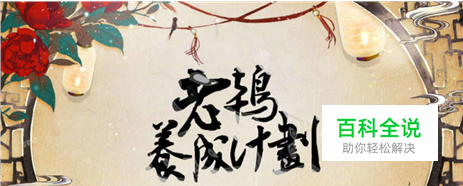 老鸨
养成计劃
百科全说
助你轻松解决